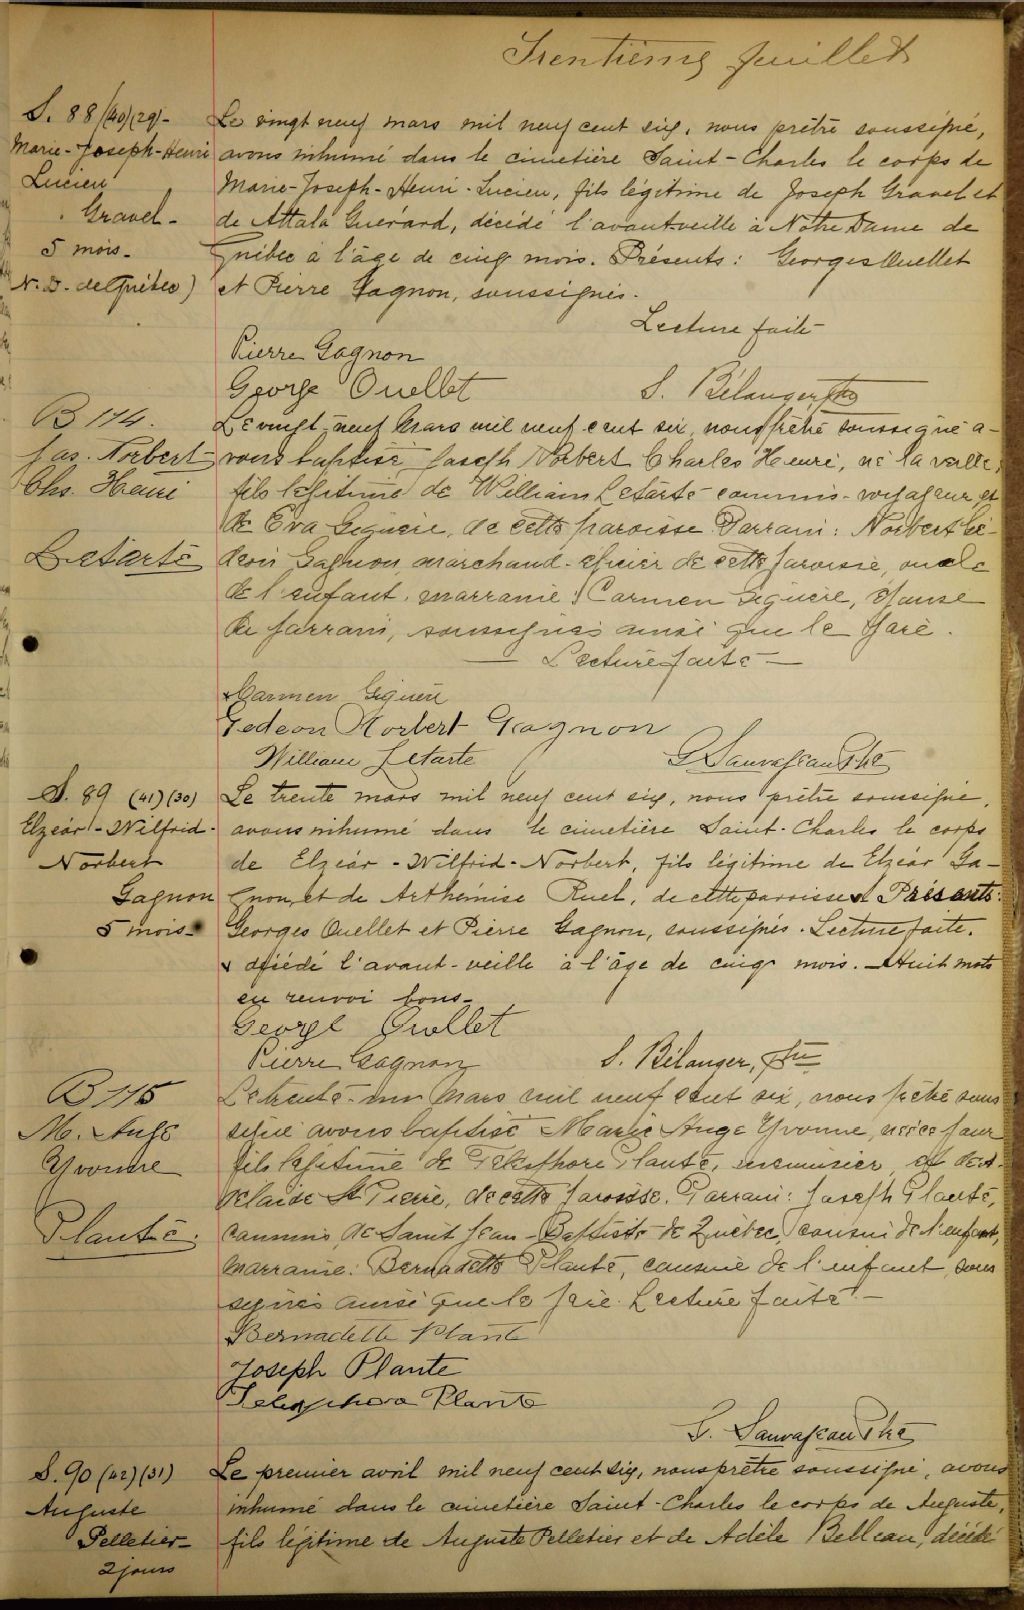 Trentième feuillet
S. 88 (40) (29) -
Marie-Joseph-Henri
Lucien
Gravel -
5 mois -
N. D. de Québec)
Le vingt neuf mars mil neuf cent six, nous prêtre soussigné,
avons inhumé dans le cimetière Saint-Charles le corps de
Marie-Joseph-Henri-Lucien, fils légitime de Joseph Gravel et
de Attala Guérard, décédé l'avant-veille à Notre Dame de
Québec à l'âge de cinq mois. Présents: Georges Ouellet
et Pierre Gagnon, soussignés.
Lecture faite
Pierre Gagnon
George Ouellet
S. Bélanger, Ptre
B 114.
Jos. Norbert
Chs. Henri
Letarte
Le vingt-neuf Mars mil neuf cent six, nous prêtre soussigné a-
vons baptisé Joseph Norbert Charles Henri, né la veille,
fils légitime de William Letarte commis-voyageur et
de Eva Giguère, de cette paroisse. Parrain: Norbert Gé-
déon Gagnon marchand-épicier de cette paroisse, oncle
de l'enfant, marraine: Carmen Giguère, épouse
du parrain, soussignés ainsi que le père.
— Lecture faite —
Carmen Giguère
Gedeon Norbert Gagnon
William Letarte
G. Sauvageau Ptre
S. 89 (41) (30)
Elzéar-Wilfrid-
Norbert
Gagnon
5 mois -
Le trente mars mil neuf cent six, nous prêtre soussigné,
avons inhumé dans le cimetière Saint-Charles le corps
de Elzéar-Wilfrid-Norbert, fils légitime de Elzéar Ga-
gnon, et de Arthémise Ruel, de cette paroisse x Présents:
Georges Ouellet et Pierre Gagnon, soussignés. Lecture faite.
x décédé l'avant-veille à l'âge de cinq mois. - Huit mots
en renvoi bons -
George Ouellet
Pierre Gagnon
S. Bélanger, Ptre
B 115
M. Ange
Yvonne
Plante.
Le trente-un Mars mil neuf cent six, nous prêtre sous
signé avons baptisé Marie Ange Yvonne, née ce jour
fils légitime de Télesphore Plante, menuisier, et de A-
delaide St Pierre, de cette paroisse. Parrain: Joseph Plante,
commis, de Saint Jean-Baptiste de Québec, cousin de l'enfant,
marraine: Bernadette Plante, cousine de l'enfant, sous
signés ainsi que le père. Lecture faite. -
Bernadette Plante
Joseph Plante
Telesphore Plante
G. Sauvageau Ptre
S. 90 (42) (31)
Auguste
Pelletier -
2 jours
Le premier avril mil neuf cent six, nous prêtre soussigné, avons
inhumé dans le cimetière Saint-Charles le corps de Auguste,
fils légitime de Auguste Pelletier et de Adèle Belleau, décédé